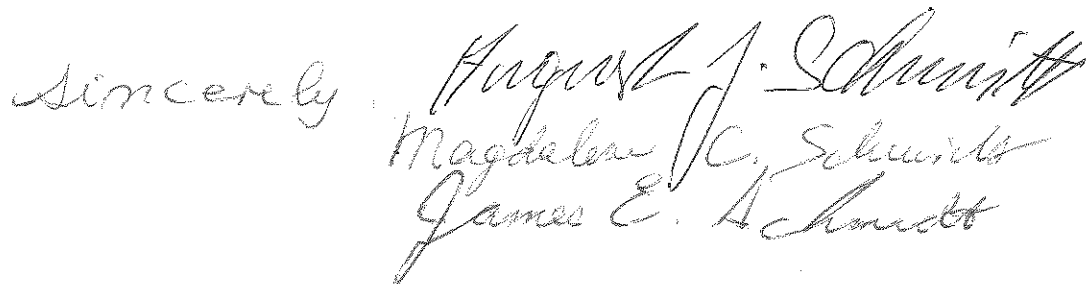 Sincerely, August J. Schmitt
Magdalene C. Schmidt
James E. Schmidt